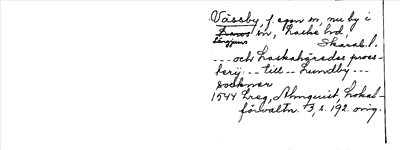 Vässby, f. egen sn, nu by i
Franos sn, Laske hd,
Längjums
Skarab. l.
--- och Laskahäredes pros-
terij --- till --- Lundby ---
sockner
1544 Lreg, Almquist, Lokal-
förvaltn. 3, s. 192. orig.